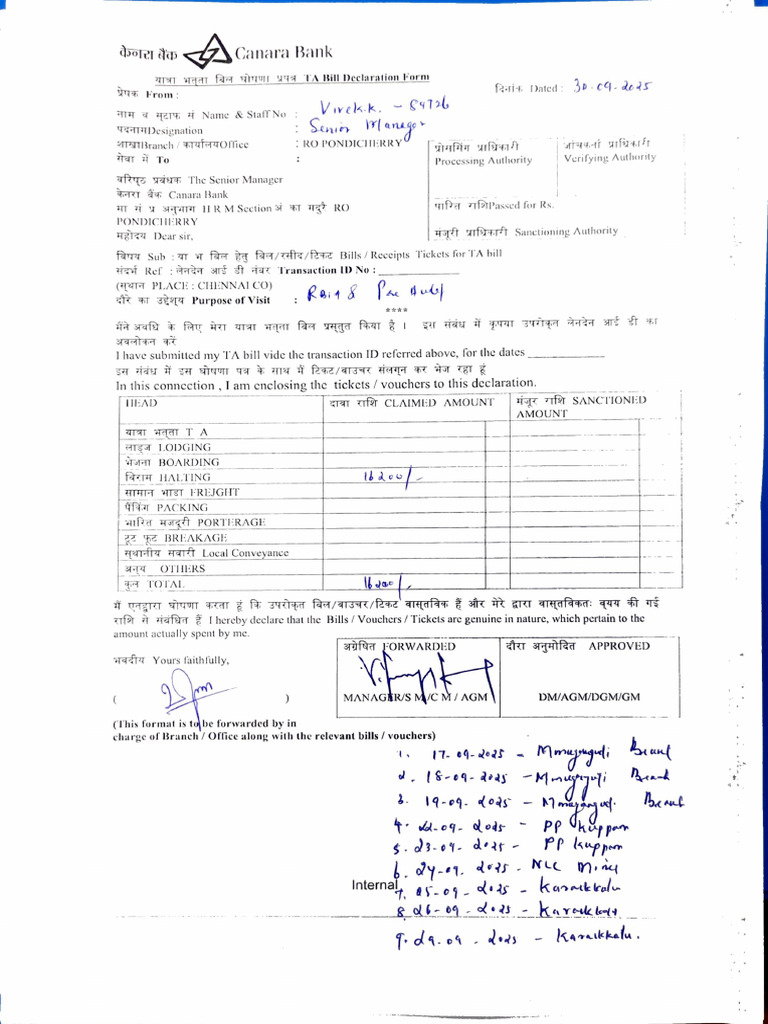 केनरा बैंक Canara Bank
यात्रा भत्ता बिल घोषणा प्रपत्र TA Bill Declaration Form
प्रेषक From :
दिनांक Dated : 30-09-2025
नाम व स्टाफ सं Name & Staff No : Vivek.K. - 84726
पदनामDesignation : Senior Manager
शाखाBranch / कार्यालयOffice : RO PONDICHERRY
सेवा में To :
प्रोसेसिंग प्राधिकारी
Processing Authority
जांचकर्ता प्राधिकारी
Verifying Authority
वरिष्ठ प्रबंधक The Senior Manager
केनरा बैंक Canara Bank
मा सं प्र अनुभाग H R M Section अं का मदुरै RO
PONDICHERRY
महोदय Dear sir,
पारित राशिPassed for Rs.
मंजूरी प्राधिकारी Sanctioning Authority
विषय Sub : या भ बिल हेतु बिल/रसीद/टिकट Bills / Receipts Tickets for TA bill
संदर्भ Ref : लेनदेन आई डी नंबर Transaction ID No : ____________
(स्थान PLACE : CHENNAI CO)
दौरे का उद्देश्य Purpose of Visit :
****
मैंने अवधि के लिए मेरा यात्रा भत्ता बिल प्रस्तुत किया है । इस संबंध में कृपया उपरोक्त लेनदेन आई डी का
अवलोकन करें
I have submitted my TA bill vide the transaction ID referred above, for the dates ____________
इस संबंध में इस घोषणा पत्र के साथ मैं टिकट/वाउचर संलग्न कर भेज रहा हूं
In this connection , I am enclosing the tickets / vouchers to this declaration.
HEAD दावा राशि CLAIMED AMOUNT मंजूर राशि SANCTIONED AMOUNT
यात्रा भत्ता T A
लाड्ज LODGING
भोजना BOARDING
विराम HALTING 16200/-
सामान भाडा FREIGHT
पैकिंग PACKING
भारित मजदूरी PORTERAGE
टूट फूट BREAKAGE
स्थानीय सवारी Local Conveyance
अन्य OTHERS
कुल TOTAL 16200/-
मैं एतद्द्वारा घोषणा करता हूं कि उपरोक्त बिल/वाउचर/टिकट वास्तविक हैं और मेरे द्वारा वास्तविकतः व्यय की गई
राशि से संबंधित हैं I hereby declare that the Bills / Vouchers / Tickets are genuine in nature, which pertain to the
amount actually spent by me.
भवदीय Yours faithfully,
( )
अग्रेषित FORWARDED
MANAGER/S M/C M / AGM
दौरा अनुमोदित APPROVED
DM/AGM/DGM/GM
(This format is to be forwarded by in
charge of Branch / Office along with the relevant bills / vouchers)
1. 17-09-2025 - Branch
2. 18-09-2025 - Branch
3. 19-09-2025 - Branch
4. 22-09-2025 - PP Kuppam
5. 23-09-2025 - PP Kuppam
6. 24-09-2025 - NLC Mines
Internal
7. 25-09-2025 - Karaikkalu
8. 26-09-2025 - Karaikkalu
9. 29-09-2025 - Karaikkalu.